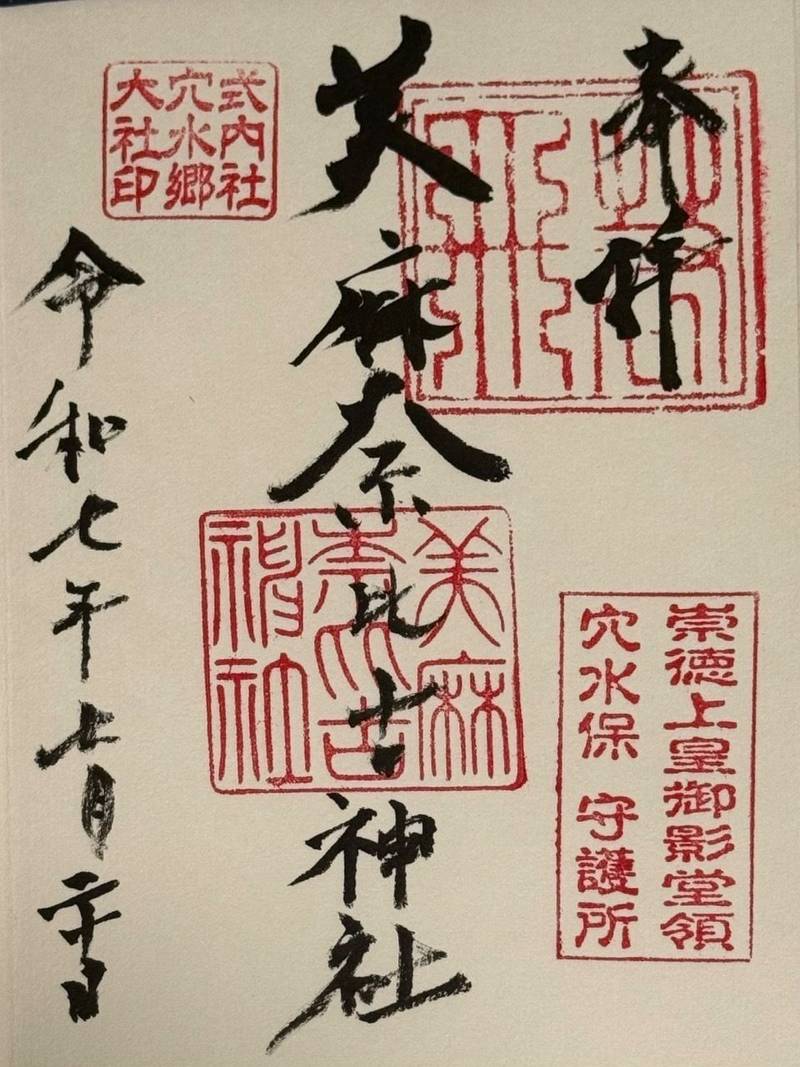 奉拝
美麻奈比古神社
令和七年七月
式内社
穴水郷
大社印
美麻
奈比古
神社
崇徳上皇御影堂領
穴水保 守護所